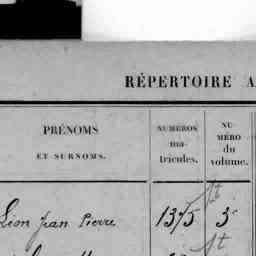 RÉPERTOIRE A
PRÉNOMS
ET SURNOMS.
NUMÉROS
ma-
tricules.
NU-
MÉRO
du
volume.
Léon Jean Pierre
1375
3